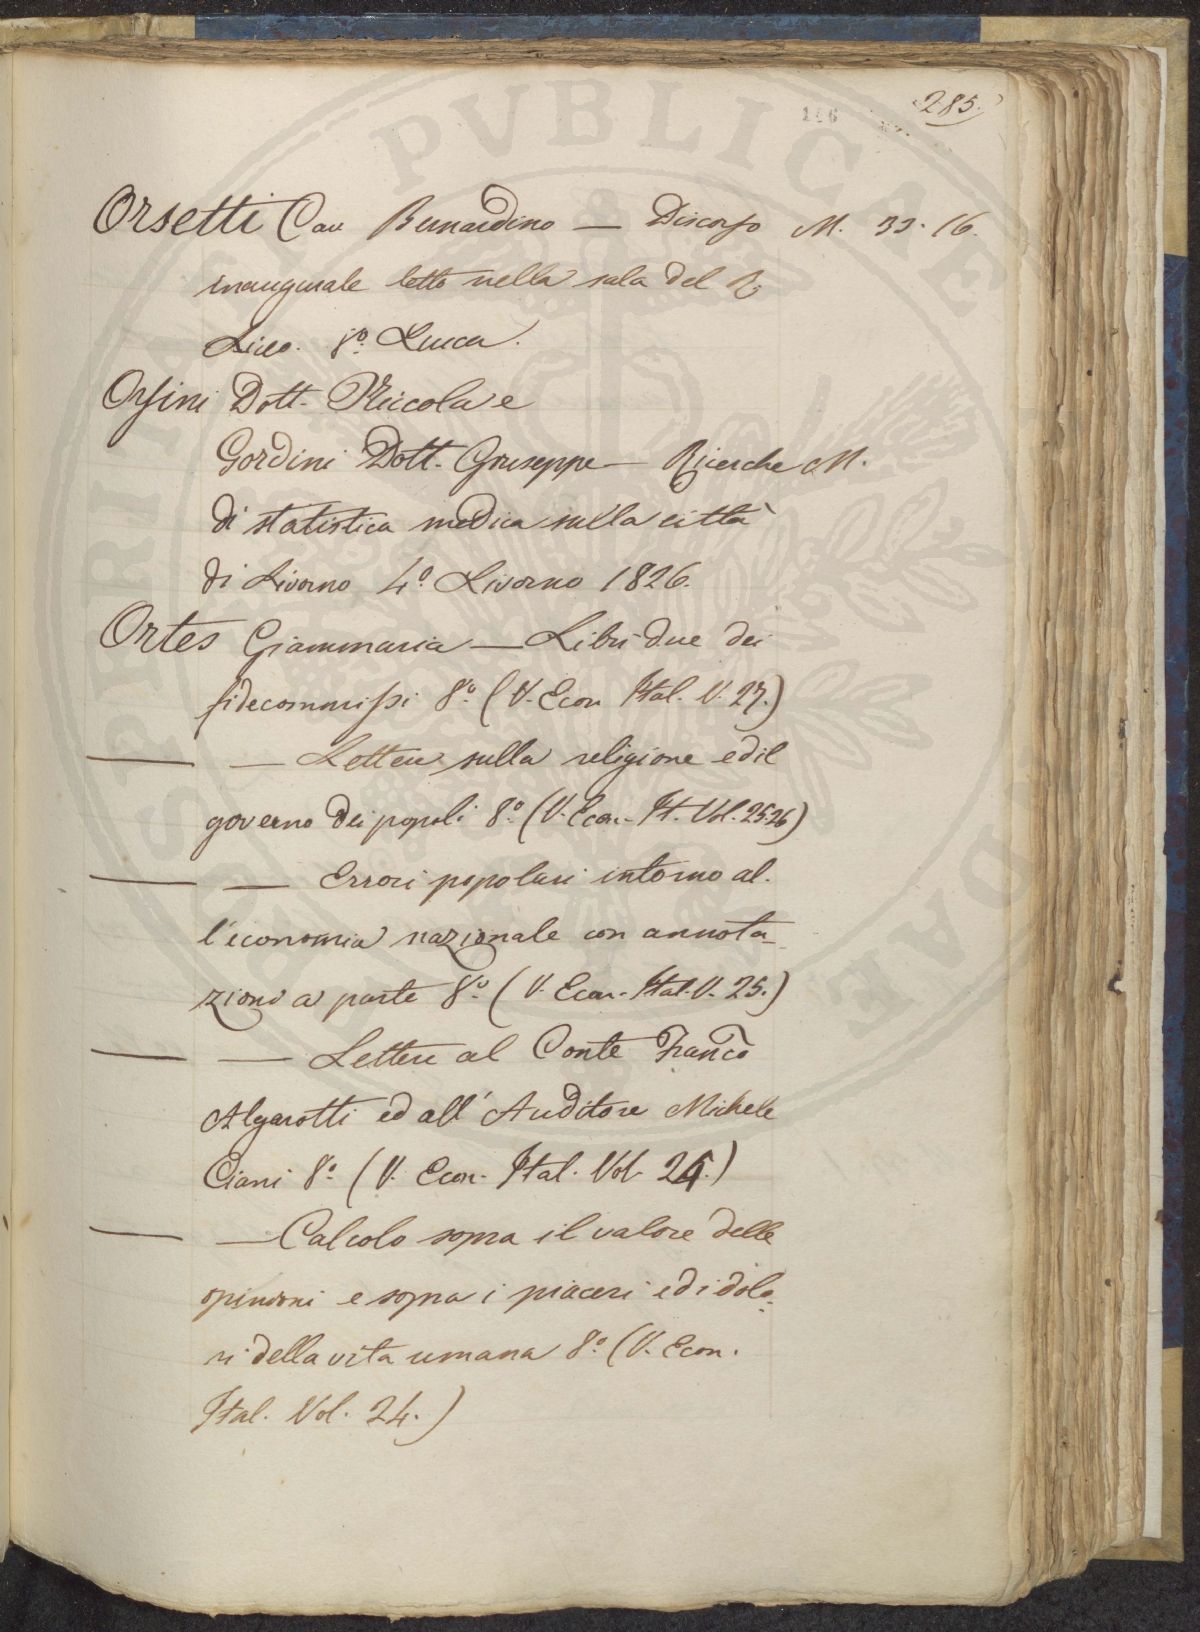 285.
Orsetti Cav Bernardino — Discorso M. 32. 16.
inaugurale letto nella sala del R
Liceo. 8º Lucca.
Orsini Dott. Niccola e
Gordini Dott. Giuseppe — Ricerche M.
di statistica medica sulla città
di Livorno 4º Livorno 1826.
Ortes Giammaria — Libri due dei
fidecommissi 8º (V. Econ Ital. V. 27.)
— — Lettere sulla religione ed il
governo dei popoli 8º (V. Econ. It. Vol. 25.26)
— — Errori popolari intorno al-
l'economia nazionale con annota-
zioni a parte 8º (V. Econ. Ital. V. 25.)
— — Lettere al Conte Franco
Algarotti ed all' Auditore Michele
Ciani 8º (V. Econ. Ital. Vol.
— — Calcolo sopra il valore delle
opinioni e sopra i piaceri ed i dolo-
ri della vita umana 8º (V. Econ.
Ital. Vol. 24.)
PVBLICAE